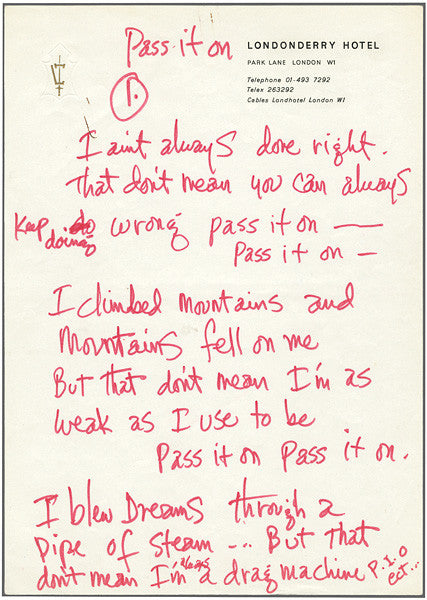 Pass it on
LONDONDERRY HOTEL
PARK LANE LONDON W1
Telephone 01-493 7292
Telex 263292
Cables Londhotel London W1
1.
I aint always done right.
That don't mean you can always
Keep doing wrong pass it on —
Pass it on —
I climbed mountains and
Mountains fell on me
But that don't mean I'm as
weak as I use to be
Pass it on Pass it on.
I blew Dreams through a
pipe of steam ... But that
don't mean I'm always a drag machine P.I.O
ect...